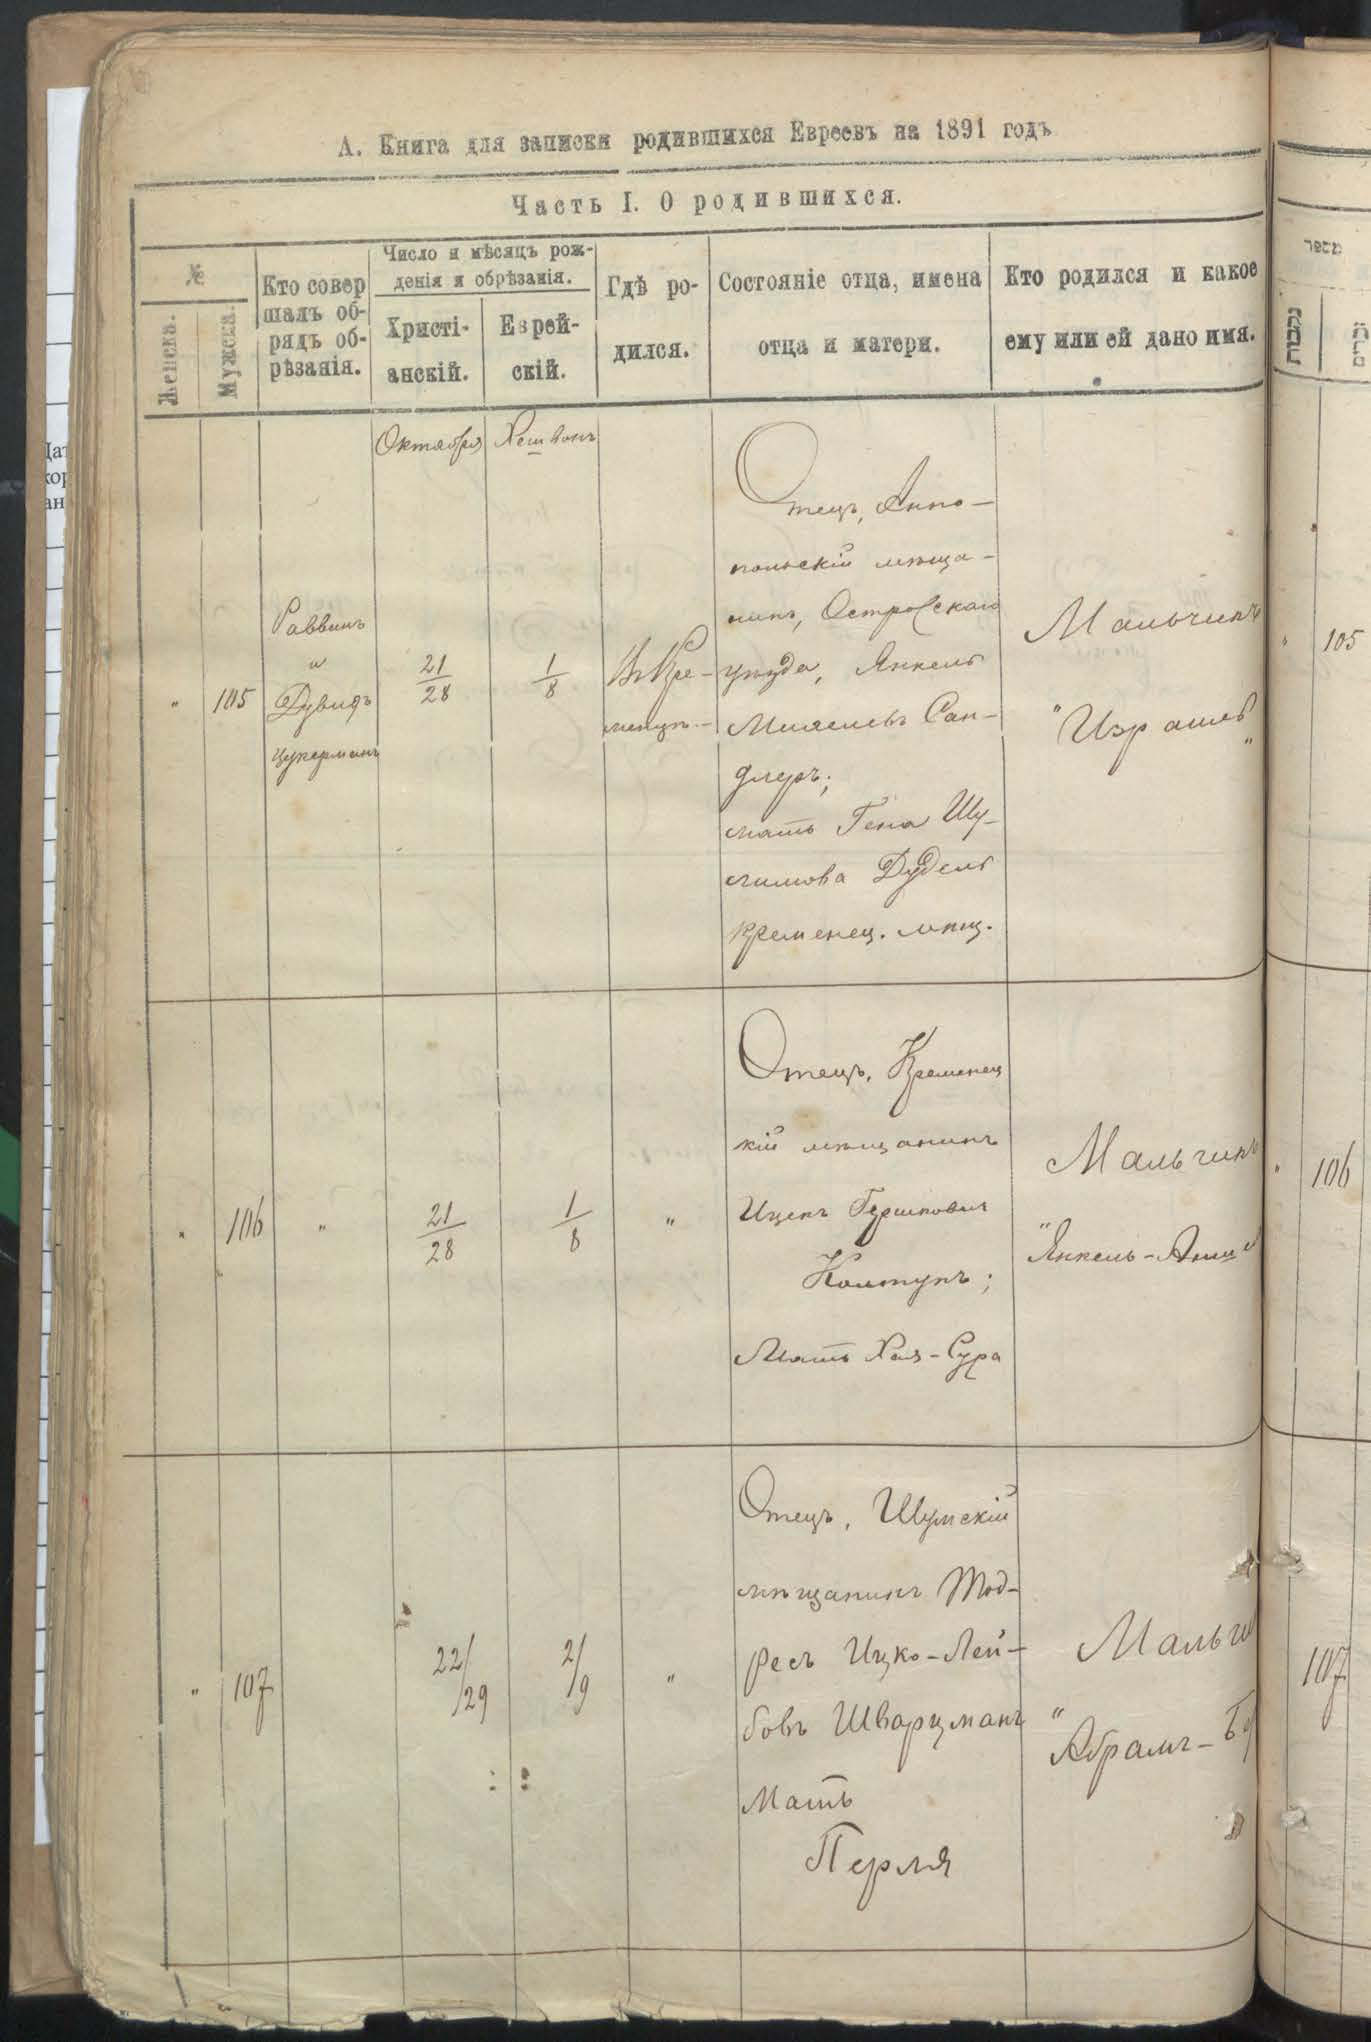 А. Книга для записки родившихся Евреевъ на 1891 годъ
Часть I. О родившихся.
№
Женска.
Мужска.
Кто совер
шалъ об-
рядъ об-
рѣзанія.
Число и мѣсяцъ рож-
денія и обрѣзанія.
Христі-
анскій.
Еврей-
скій.
Гдѣ ро-
дился.
Состояніе отца, имена
отца и матери.
Кто родился и какое
ему или ей дано имя.
Октября
Хешванъ
"
105
Раввинъ
и
Дувидъ
Цукерманъ
21
28
1
8
Въ Кре-
менцѣ.
Отецъ, Анно-
польскій мѣща-
нинъ, Острогскаго
уѣзда, Янкель
Сан-
длеръ;
мать Гена Шу-
лимова
кременец. мѣщ.
Мальчикъ
"Израиль"
"
106
"
21
28
1
8
"
Отецъ, Кременец
кій мѣщанинъ
Ицекъ Гершкович
Колтунъ;
Мать Хая-Сура
Мальчикъ
"Янкель-
"
107
22/29
2/9
"
Отецъ, Шумскій
мѣщанинъ Тод-
ресъ Ицко-Лей-
бовъ Шварцманъ
Мать
Перля
"Абрамъ-
נקבות
זכרים
"
105
"
106
107